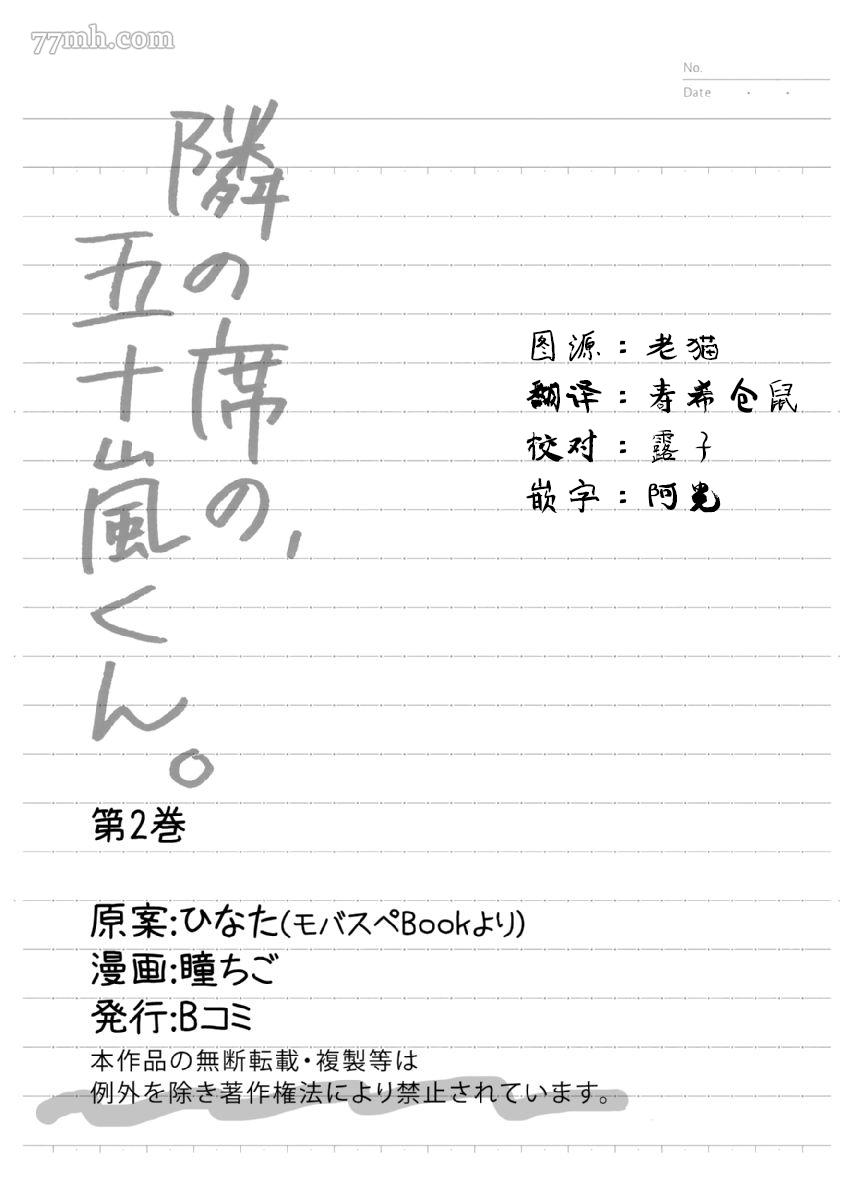 77mh.com
No.
Date
隣の席の、
五十嵐くん。
图源：老猫
翻译：寿希仓鼠
校对：露子
嵌字：阿光
第2巻
原案:ひなた(モバスペBookより)
漫画:瞳ちご
発行:Bコミ
本作品の無断転載・複製等は
例外を除き著作権法により禁止されています。